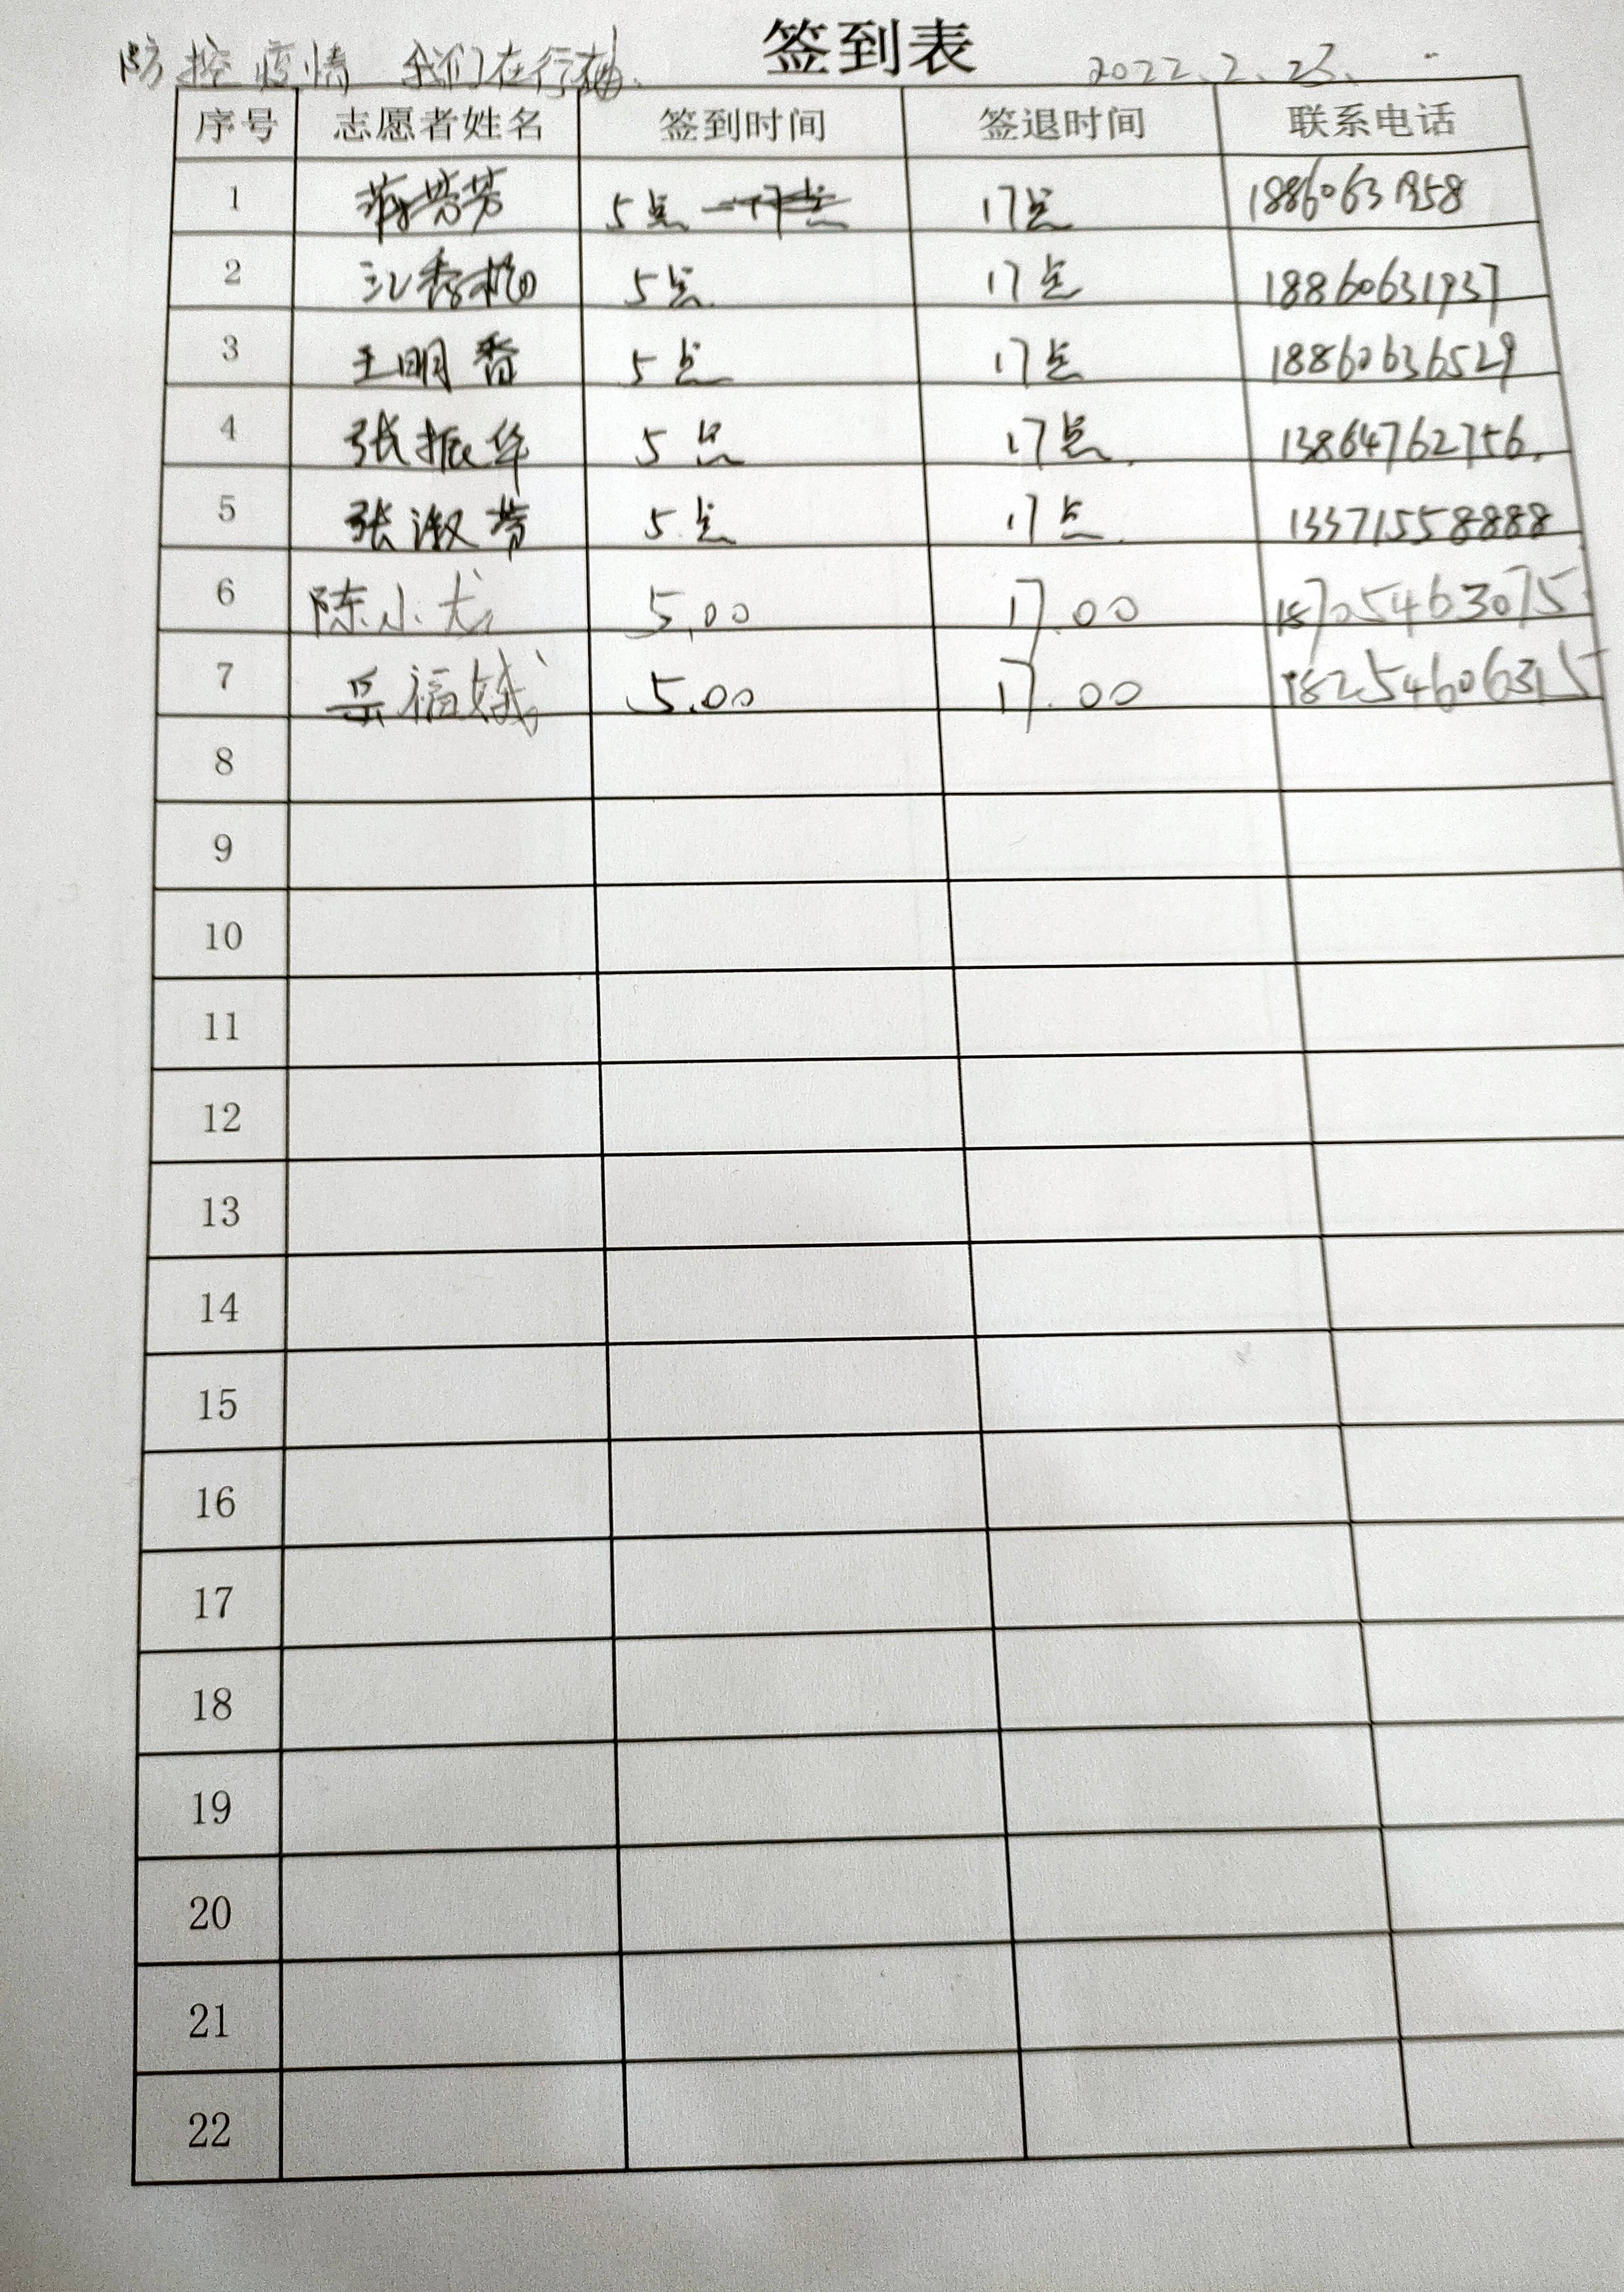 签到表
防控疫情 我们在行动. 2022.2.23.
序号 志愿者姓名 签到时间 签退时间 联系电话
1 蒋芳芳 5点 17点
2 江秀梅 5点 17点 18860631937
3 王明香 5点 17点 18860636529
4 张振华 5点 17点. 13864762756.
5 张淑芳 5点 17点. 13371558888
6 陈小龙 5.00 17.00 18705463075
7 岳福娥 5.00 17.00 18254606315
8
9
10
11
12
13
14
15
16
17
18
19
20
21
22